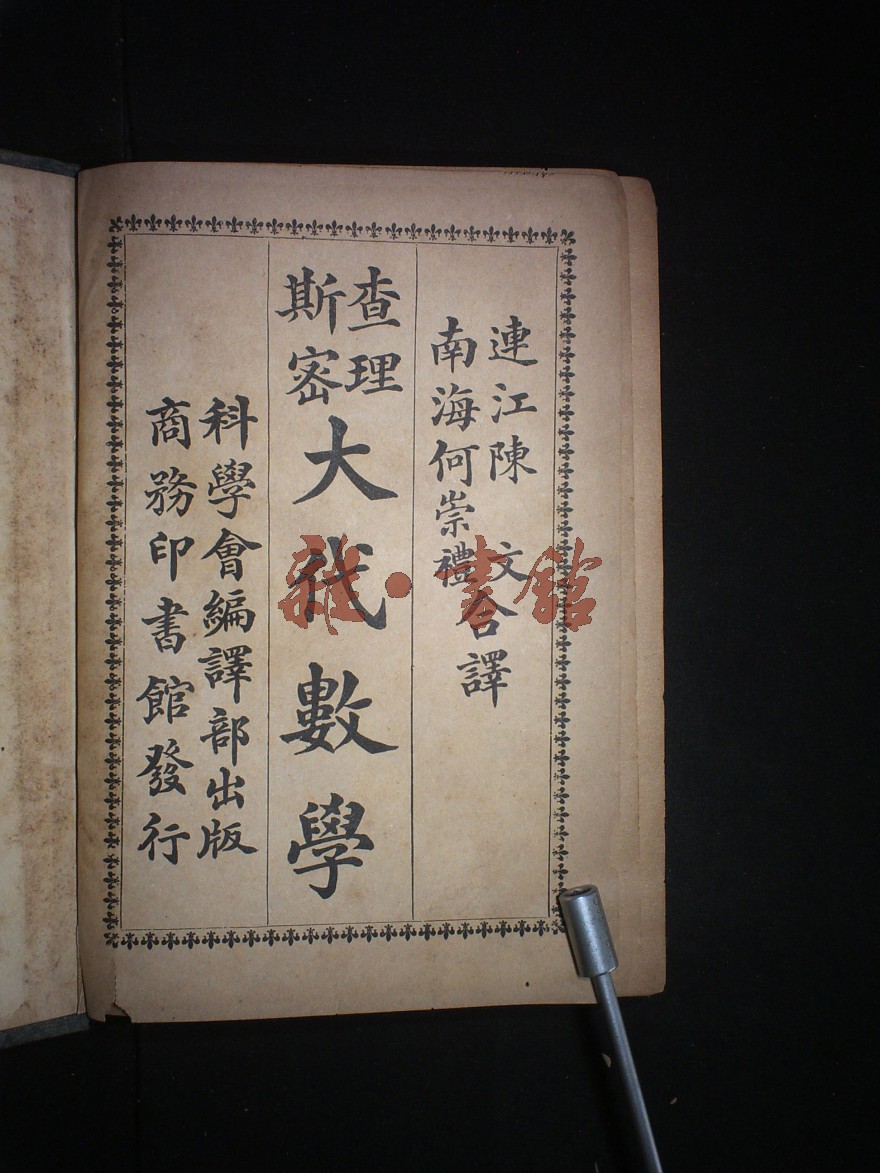 連江陳文
南海何崇禮
合譯
查理
斯密
大代數學
科學會編譯部出版
商務印書館發行
雜·書館